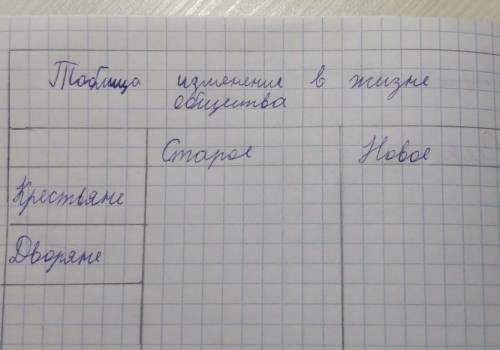 Таблица изменения в жизне
общества
Старое Новое
Крествяне
Дворяне